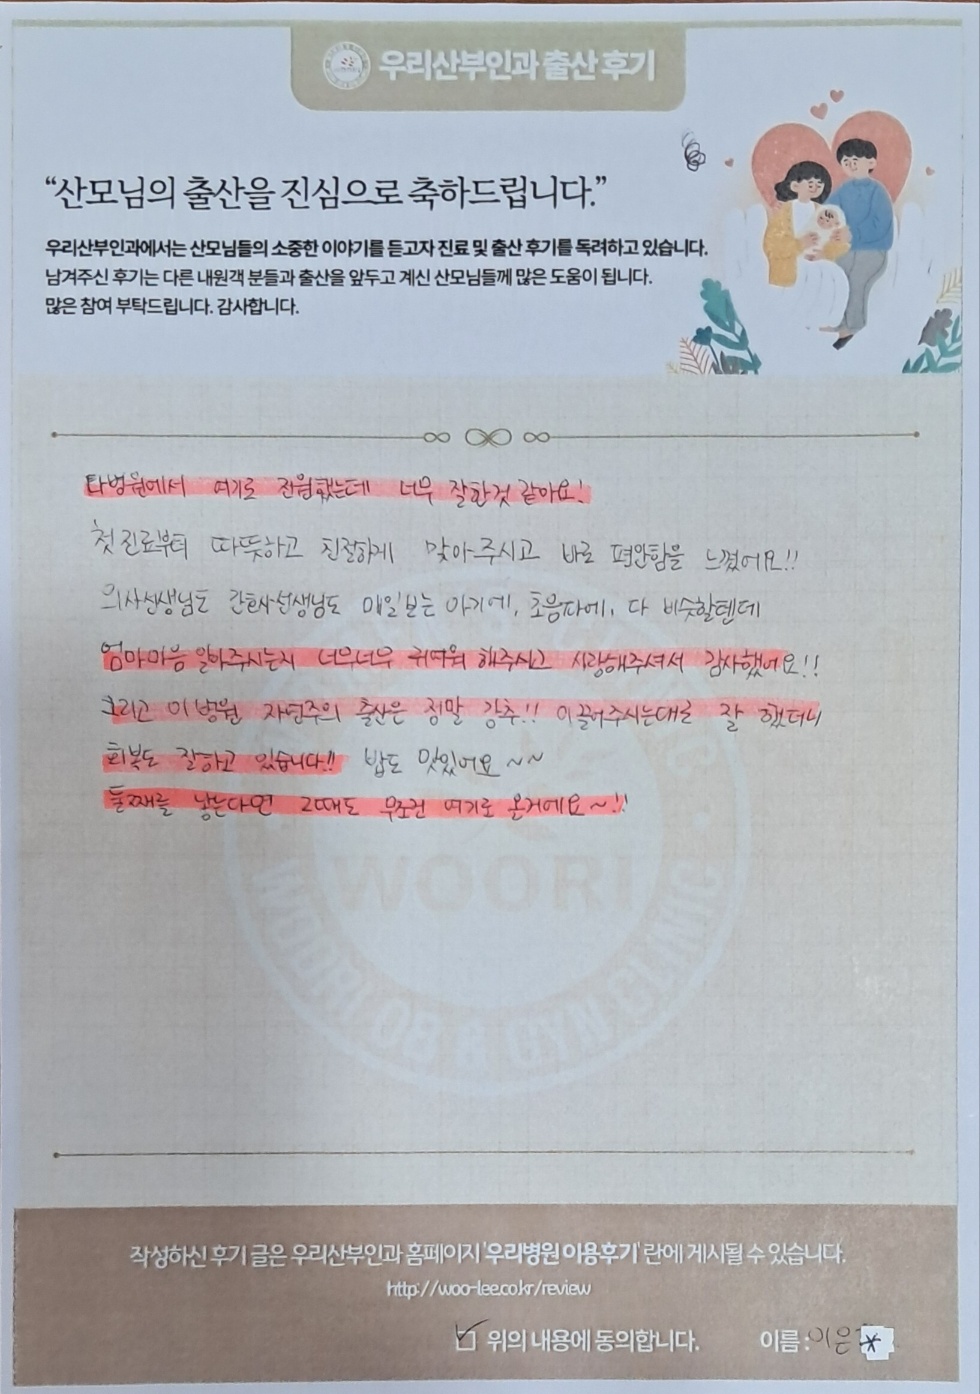 우리산부인과 출산 후기
“산모님의 출산을 진심으로 축하드립니다.”
우리산부인과에서는 산모님들의 소중한 이야기를 듣고자 진료 및 출산 후기를 독려하고 있습니다.
남겨주신 후기는 다른 내원객 분들과 출산을 앞두고 계신 산모님들께 많은 도움이 됩니다.
많은 참여 부탁드립니다. 감사합니다.
타병원에서 여기로 전원했는데 너무 잘한것 같아요!
첫 진료부터 따뜻하고 친절하게 맞아주시고 바로 편안함을 느꼈어요!!
의사선생님도 간호사선생님도 매일보는 아기에, 초음파에, 다 비슷할텐데
엄마마음 알아주시는지 너무너무 귀여워 해주시고 사랑해주셔서 감사했어요!!
그리고 이병원 자연주의 출산은 정말 강추!! 이끌어주시는대로 잘 했더니
회복도 잘하고 있습니다!! 밥도 맛있어요~~
둘째를 낳는다면 그때도 무조건 여기로 올거에요~!!
WOORI
WOORI OB & GYN CLINIC
작성하신 후기 글은 우리산부인과 홈페이지 '우리병원 이용후기' 란에 게시될 수 있습니다.
http://woo-lee.co.kr/review
위의 내용에 동의합니다. 이름 : 이은*